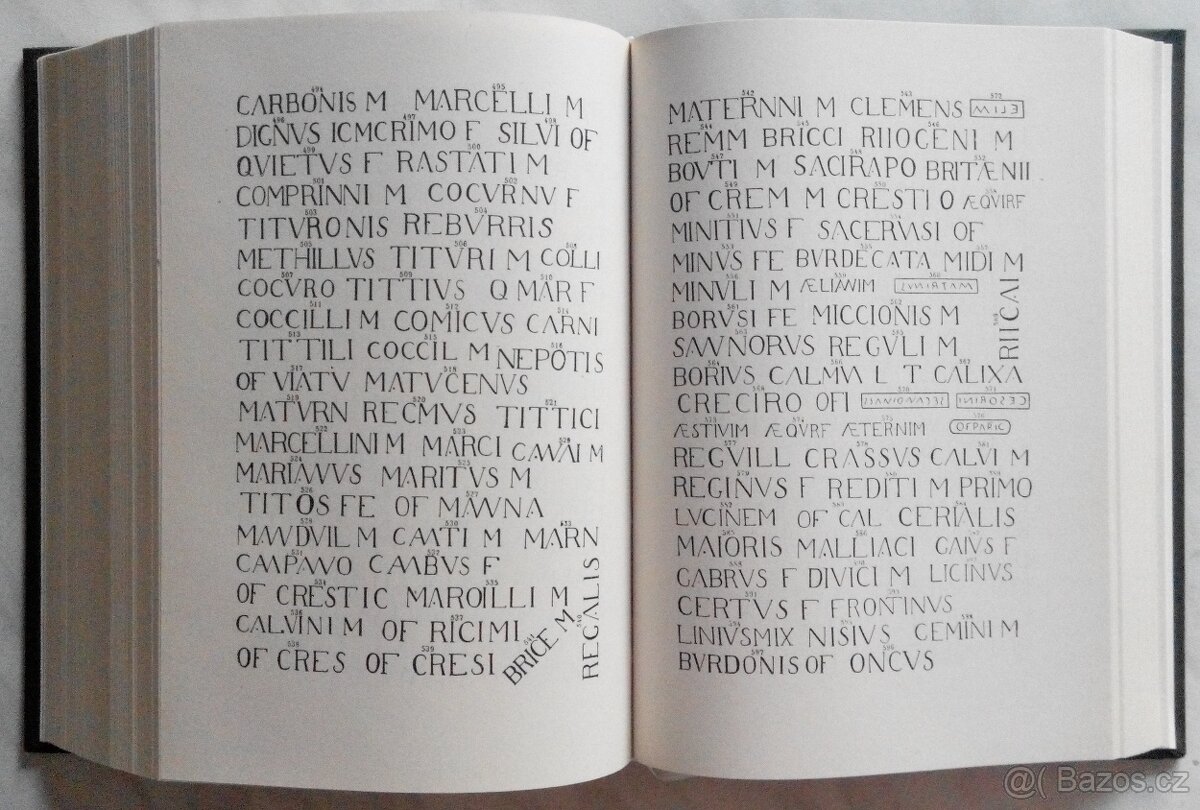 CARBONIS M MARCELLI M
DIGNVS ICMCRIMO F SILVI OF
QVIETVS F RASTATI M
COMPRINNI M COCVRNV F
TITVRONIS REBVRRIS
METHILLVS TITVRI M COLLI
COCVRO TITTIVS Q MAR F
COCCILLI M COMICVS CARNI
TITTILI COCCIL M NEPOTIS
OF VIATV MATVCENVS
MATVRN RECMVS TITTICI
MARCELLINI M MARCI
MARITVS M
TITOS FE OF
MARN
OF CRESTIC MAROILLI M
CALVINI M OF RICIMI
OF CRES OF CRESI
BRICE M
REGALIS
MATERNNI M CLEMENS
REMM BRICCI RIIOGENI M
BOVTI M SACIRAPO BRITÆNII
OF CREM M CRESTI O ÆQVIRF
MINITIVS F SACERVASI OF
MINVS FE BVRDECATA MIDI M
MINVLI M
BORVSI FE MICCIONIS M
RIICALI
REGVLI M
BORIVS CALMVA L T CALIXA
CRECIRO OFI
ÆSTIVIM ÆQVRF ÆTERNIM OFPARIC
REGVILL CRASSVS CALVI M
REGINVS F REDITI M PRIMO
LVCINEM OF CAL CERIALIS
MAIORIS MALLIACI GAIVS F
GABRVS F DIVICI M LICINVS
CERTVS F FRONTINVS
LINIVSMIX NISIVS GEMINI M
BVRDONIS OF ONCVS
@( Bazos.cz